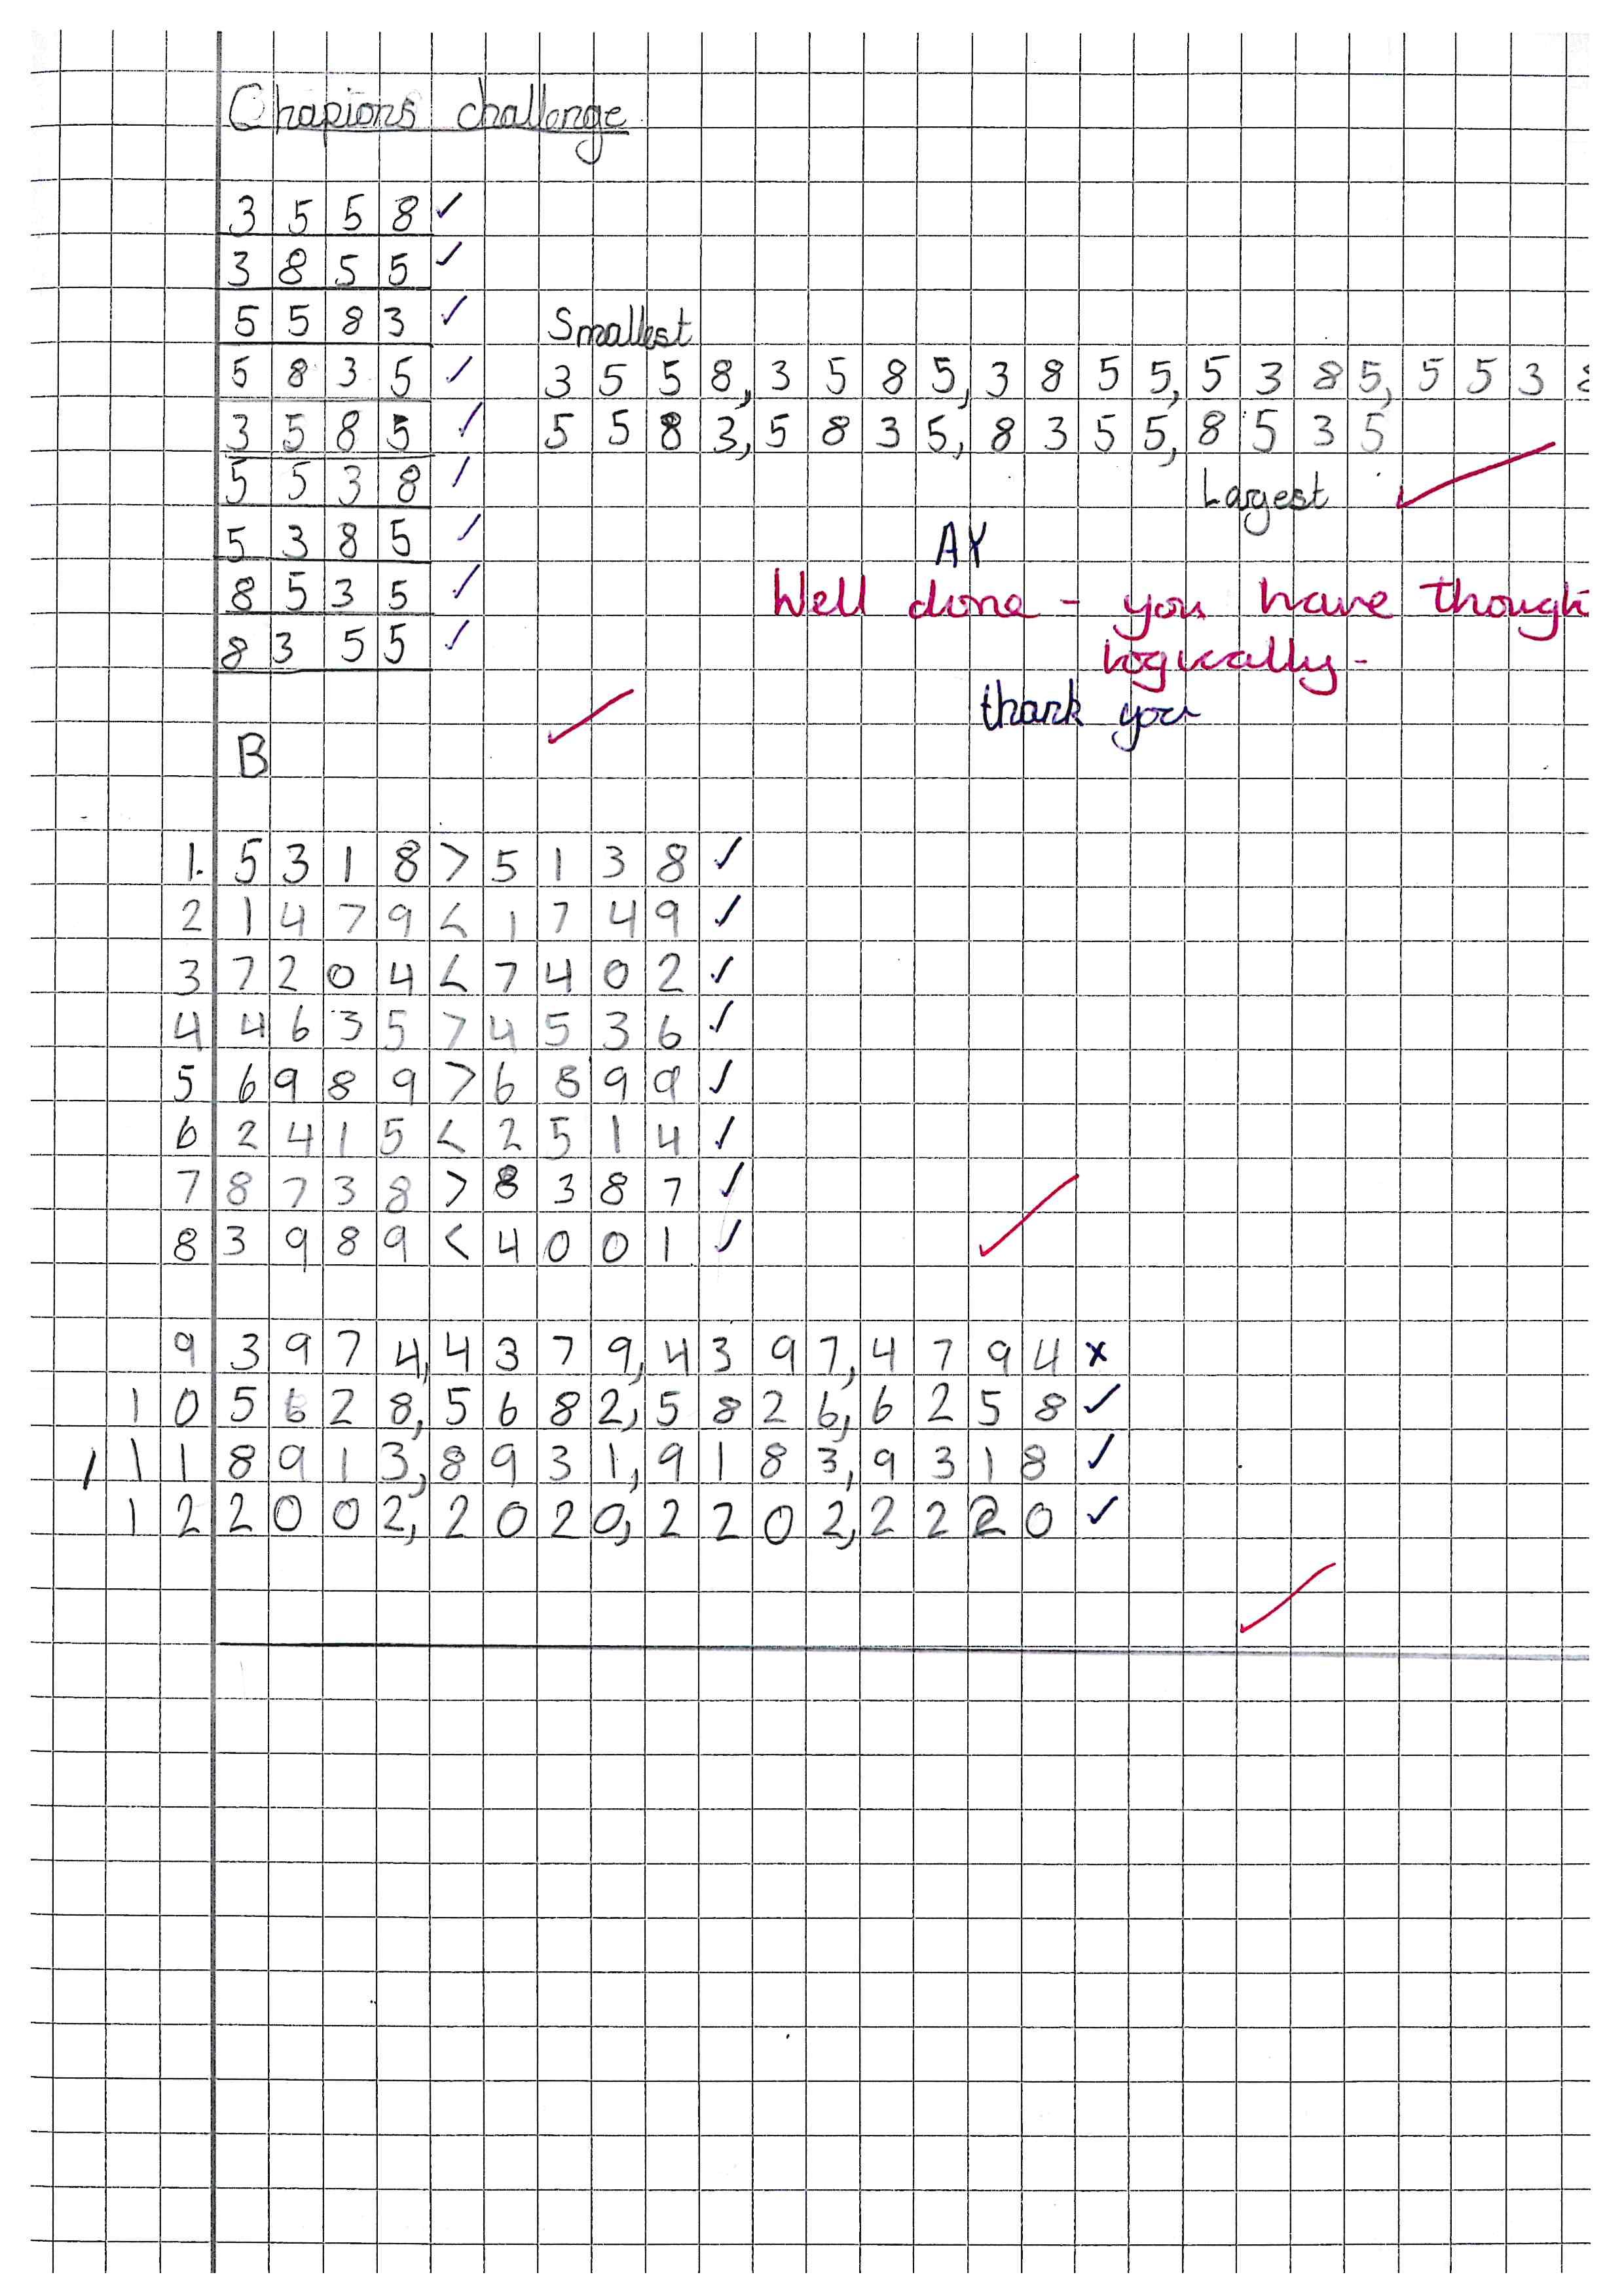 Chapions challenge
3 5 5 8 ✓
3 8 5 5 ✓
5 5 8 3 ✓
5 8 3 5 ✓
3 5 8 5 ✓
5 5 3 8 ✓
5 3 8 5 ✓
8 5 3 5 ✓
8 3 5 5 ✓
Smallest
3 5 5 8, 3 5 8 5, 3 8 5 5, 5 3 8 5, 5 5 3 8
5 5 8 3, 5 8 3 5, 8 3 5 5, 8 5 3 5
Largest ✓
AY
Well done - you have though
logically -
thank you
✓
B
1. 5 3 1 8 > 5 1 3 8 ✓
2 1 4 7 9 < 1 7 4 9 ✓
3 7 2 0 4 < 7 4 0 2 ✓
4 4 6 3 5 > 4 5 3 6 ✓
5 6 9 8 9 > 6 8 9 9 ✓
6 2 4 1 5 < 2 5 1 4 ✓
7 8 7 3 8 > 8 3 8 7 ✓
8 3 9 8 9 < 4 0 0 1 ✓
✓
9 3 9 7 4, 4 3 7 9, 4 3 9 7, 4 7 9 4 x
10 5 6 2 8, 5 6 8 2, 5 8 2 6, 6 2 5 8 ✓
11 8 9 1 3, 8 9 3 1, 9 1 8 3, 9 3 1 8 ✓
12 2 0 0 2, 2 0 2 0, 2 2 0 2, 2 2 2 0 ✓
✓